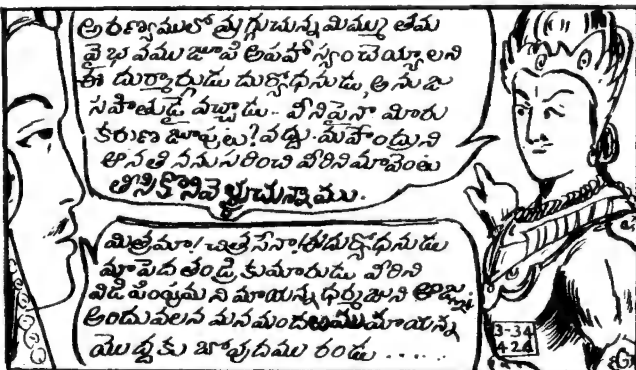 అరణ్యములో మ్రగ్గుచున్న మిమ్ము తమ
వైభవము జూపి అపహాస్యం చెయ్యాలని
ఈ దుర్మార్గుడు దుర్యోధనుడు, అనుజ
సహితుడై వచ్చాడు.. వీనిపైనా మీరు
కరుణ జూపులు? వద్దు. మహేంద్రుని
ఆనతి ననుసరించి వీరిని మావెంట
తీసికొనివెళ్లుచున్నాము.
మిత్రమా! చిత్రసేనా! ఈ దుర్యోధనుడు
మా పెద తండ్రి కుమారుడు వీరిని
విడిపింపుమని మాయన్న ధర్మజుని ఆజ్ఞ.
అందువలన మనమందఱము మాయన్న
యొద్దకు బోవుదము రండు ......
3-34
424